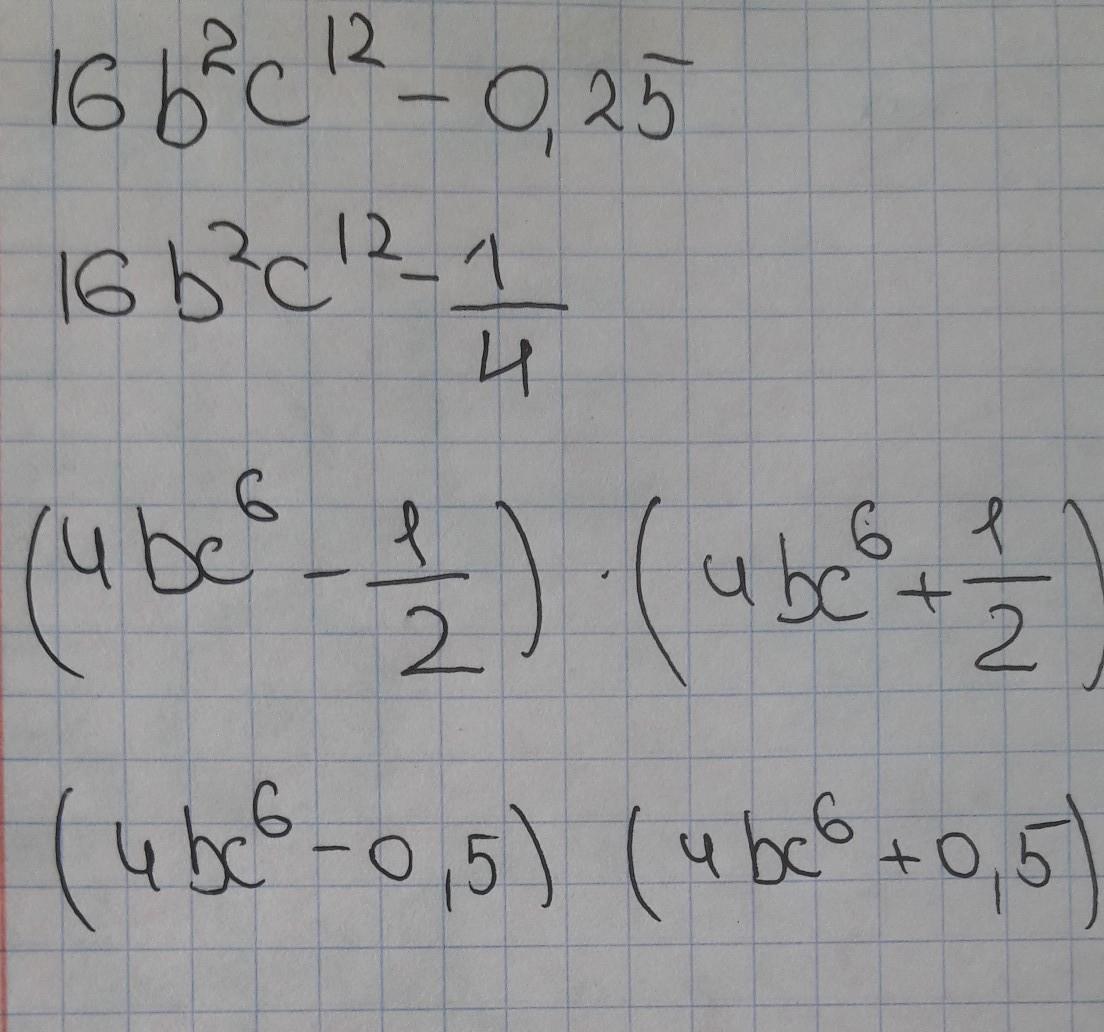 16b²c¹² - 0,25
16b²c¹² - 1/4
(4bc⁶ - 1/2) · (4bc⁶ + 1/2)
(4bc⁶ - 0,5) (4bc⁶ + 0,5)